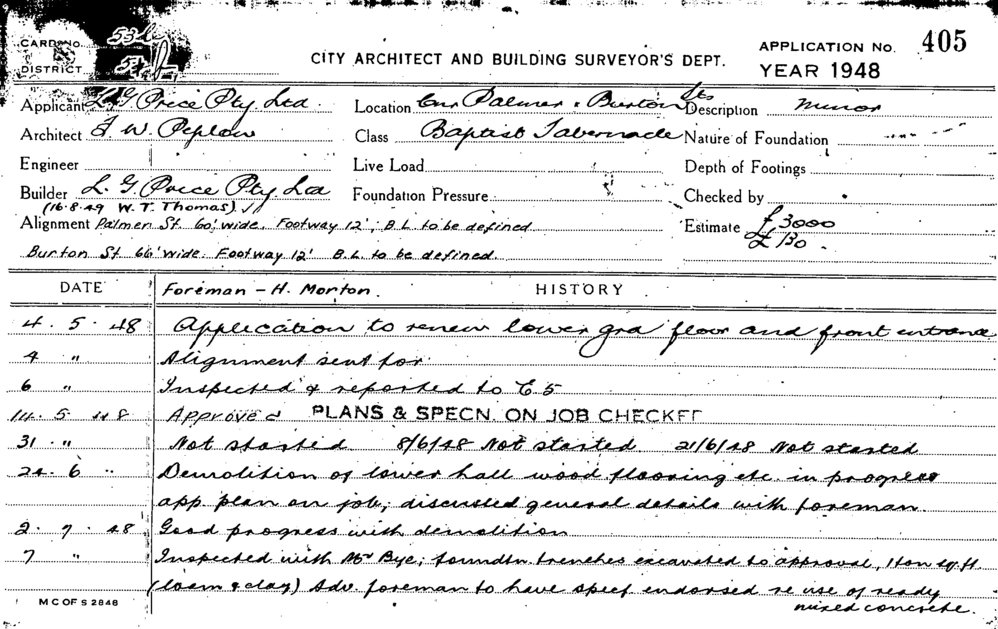 CARD No. 53
DISTRICT
CITY ARCHITECT AND BUILDING SURVEYOR'S DEPT.
APPLICATION No. 405
YEAR 1948
Applicant L. G. Price Pty. Ltd. Location Cnr Palmer & Burton Sts Description Minor
Architect F. W. Peplow Class Baptist Tabernacle Nature of Foundation
Engineer Live Load Depth of Footings
Builder L. G. Price Pty. Ltd Foundation Pressure Checked by
(16.8.49 W. T. Thomas)
Alignment Palmer St 60' wide. Footway 12', B.L. to be defined Estimate £3000
£130.
Burton St 66' wide. Footway 12' B.L. to be defined.
DATE Foreman - H. Morton. HISTORY
4. 5. 48 Application to renew lower grd floor and front entrance
4 " Alignment sent for
6 " Inspected & reported to C 5
14. 5 48 Approved PLANS & SPECN. ON JOB CHECKED
31 " Not started 8/6/48 Not started 21/6/48 Not started
24. 6 " Demolition of lower hall wood flooring etc. in progress
app. plan on job; discussed general details with foreman.
2. 7. 48 Good progress with demolition
7 " Inspected with Mr Bye; foundtn. trenches excavated to approval, 1 ton sq. ft.
(loam & clay) Adv. foreman to have specf endorsed re use of ready
mixed concrete.
M C OF S 2848